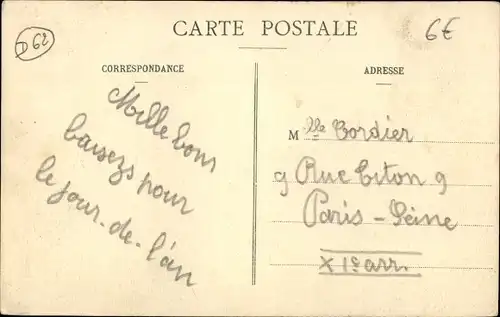 D62
CARTE POSTALE
6€
CORRESPONDANCE
ADRESSE
Mille bons
baisers pour
le jour-de-l'an
Mlle Cordier
9 Rue Titon 9
Paris-Seine
XIe arr.